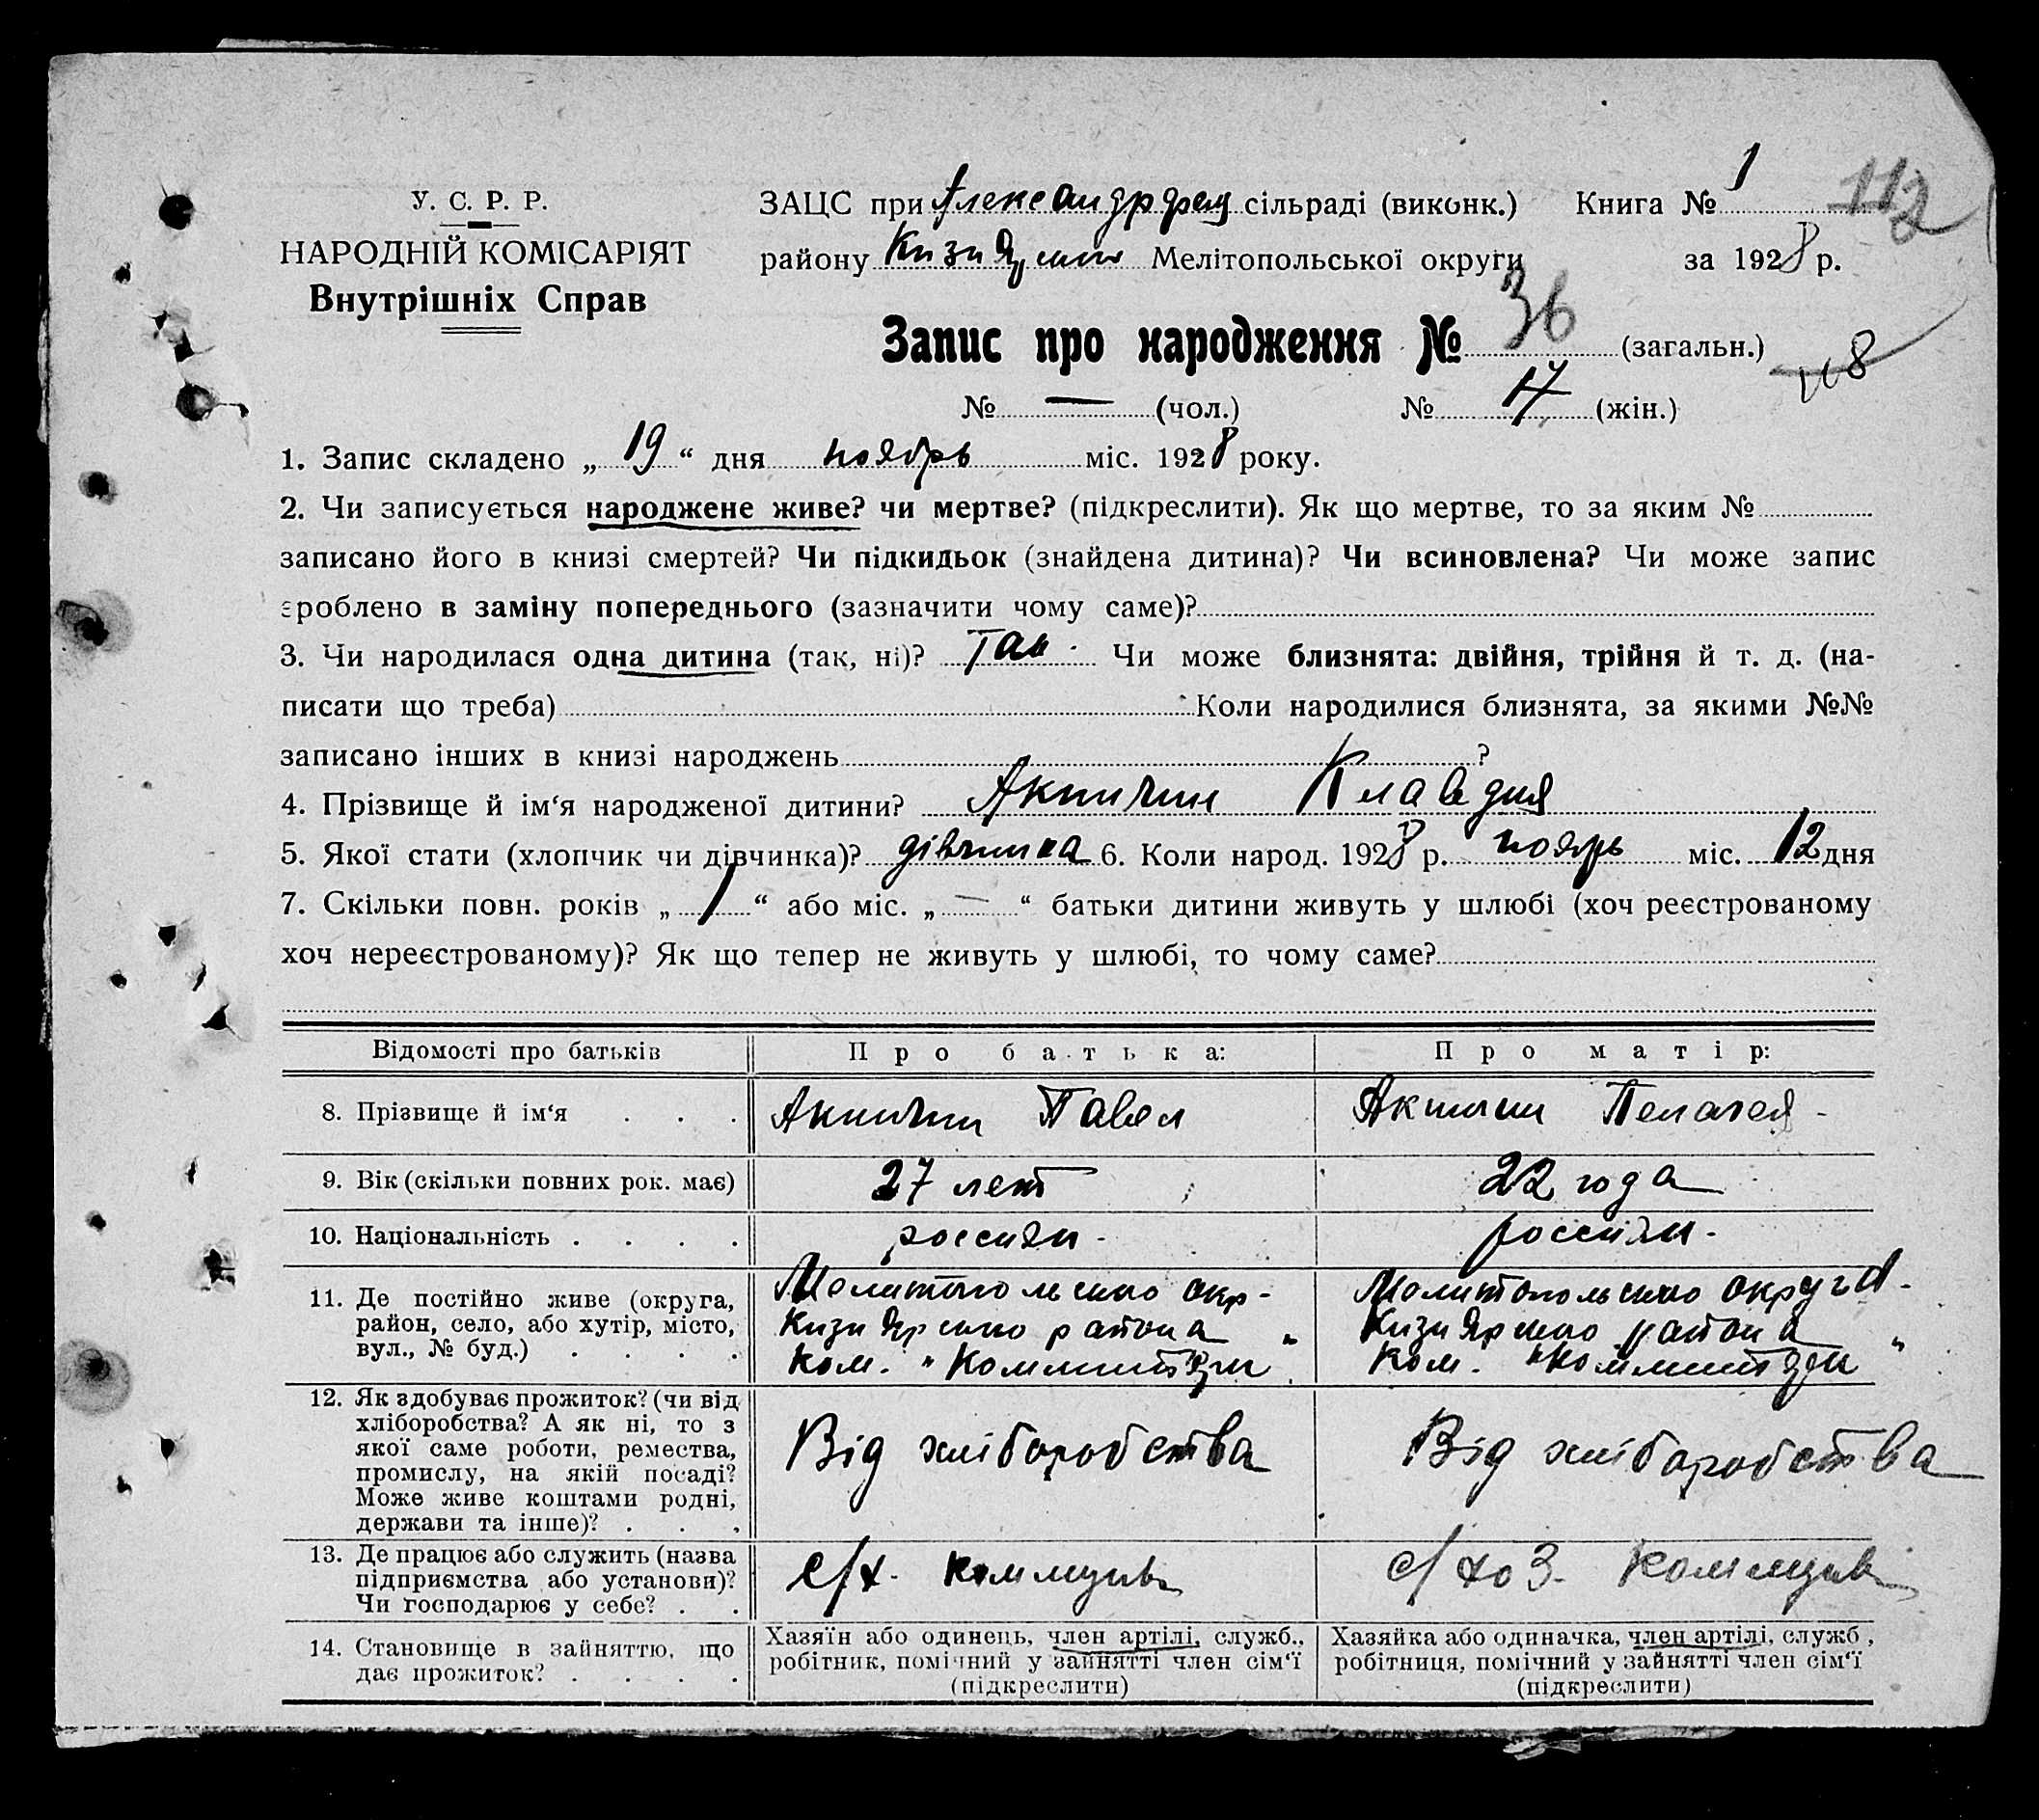 1
112
У. С. Р. Р.
НАРОДНІЙ КОМІСАРІЯТ
Внутрішніх Справ
ЗАЦС при сільраді (виконк.) Книга №
району Мелітопольської округи за 1928 р.
Запис про народження № 36 (загальн.)
118
№ — (чол.) № 17 (жін.)
1. Запис складено „ 19 “ дня ноябрь міс. 1928 року.
2. Чи записується народжене живе? чи мертве? (підкреслити). Як що мертве, то за яким №
записано його в книзі смертей? Чи підкидьок (знайдена дитина)? Чи всиновлена? Чи може запис
зроблено в заміну попереднього (зазначити чому саме)?
3. Чи народилася одна дитина (так, ні)? Так. Чи може близнята: двійня, трійня й т. д. (на-
писати що треба) Коли народилися близнята, за якими №№
записано інших в книзі народжень ?
4. Прізвище й ім‘я народженої дитини? Клавдия
5. Якої стати (хлопчик чи дівчинка)? дівчинка 6. Коли народ. 1928 р. ноярь міс. 12 дня
7. Скільки повн. років „ 1 “ або міс. „ — “ батьки дитини живуть у шлюбі (хоч реєстрованому
хоч нереєстрованому)? Як що тепер не живуть у шлюбі, то чому саме?
Відомості про батьків Про батька: Про матір:
8. Прізвище й ім‘я . . . Павел Пелагея -
9. Вік (скільки повних рок. має) 27 лет 22 года
10. Національність . . . . россиян - россиян -
11. Де постійно живе (округа,
район, село, або хутір, місто,
вул., № буд.) . . . .
окр-
района
ком.
округа -
района
ком.
12. Як здобуває прожиток? (чи від
хліборобства? А як ні, то з
якої саме роботи, ремества,
промислу, на якій посаді?
Може живе коштами родні,
держави та інше)? . . .
Від хліборобства
Від хліборобства
13. Де працює або служить (назва
підприємства або установи)?
Чи господарює у себе? . .
с/х. коммуна
с/хоз. коммуна
14. Становище в зайняттю, що
дає прожиток? . . . .
Хазяїн або одинець, член артілі, служб.,
робітник, помічний у зайнятті член сім‘ї
(підкреслити)
Хазяйка або одиначка, член артілі, служб.,
робітниця, помічний у зайнятті член сім‘ї
(підкреслити)